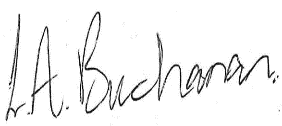 L.A. Buchanan.